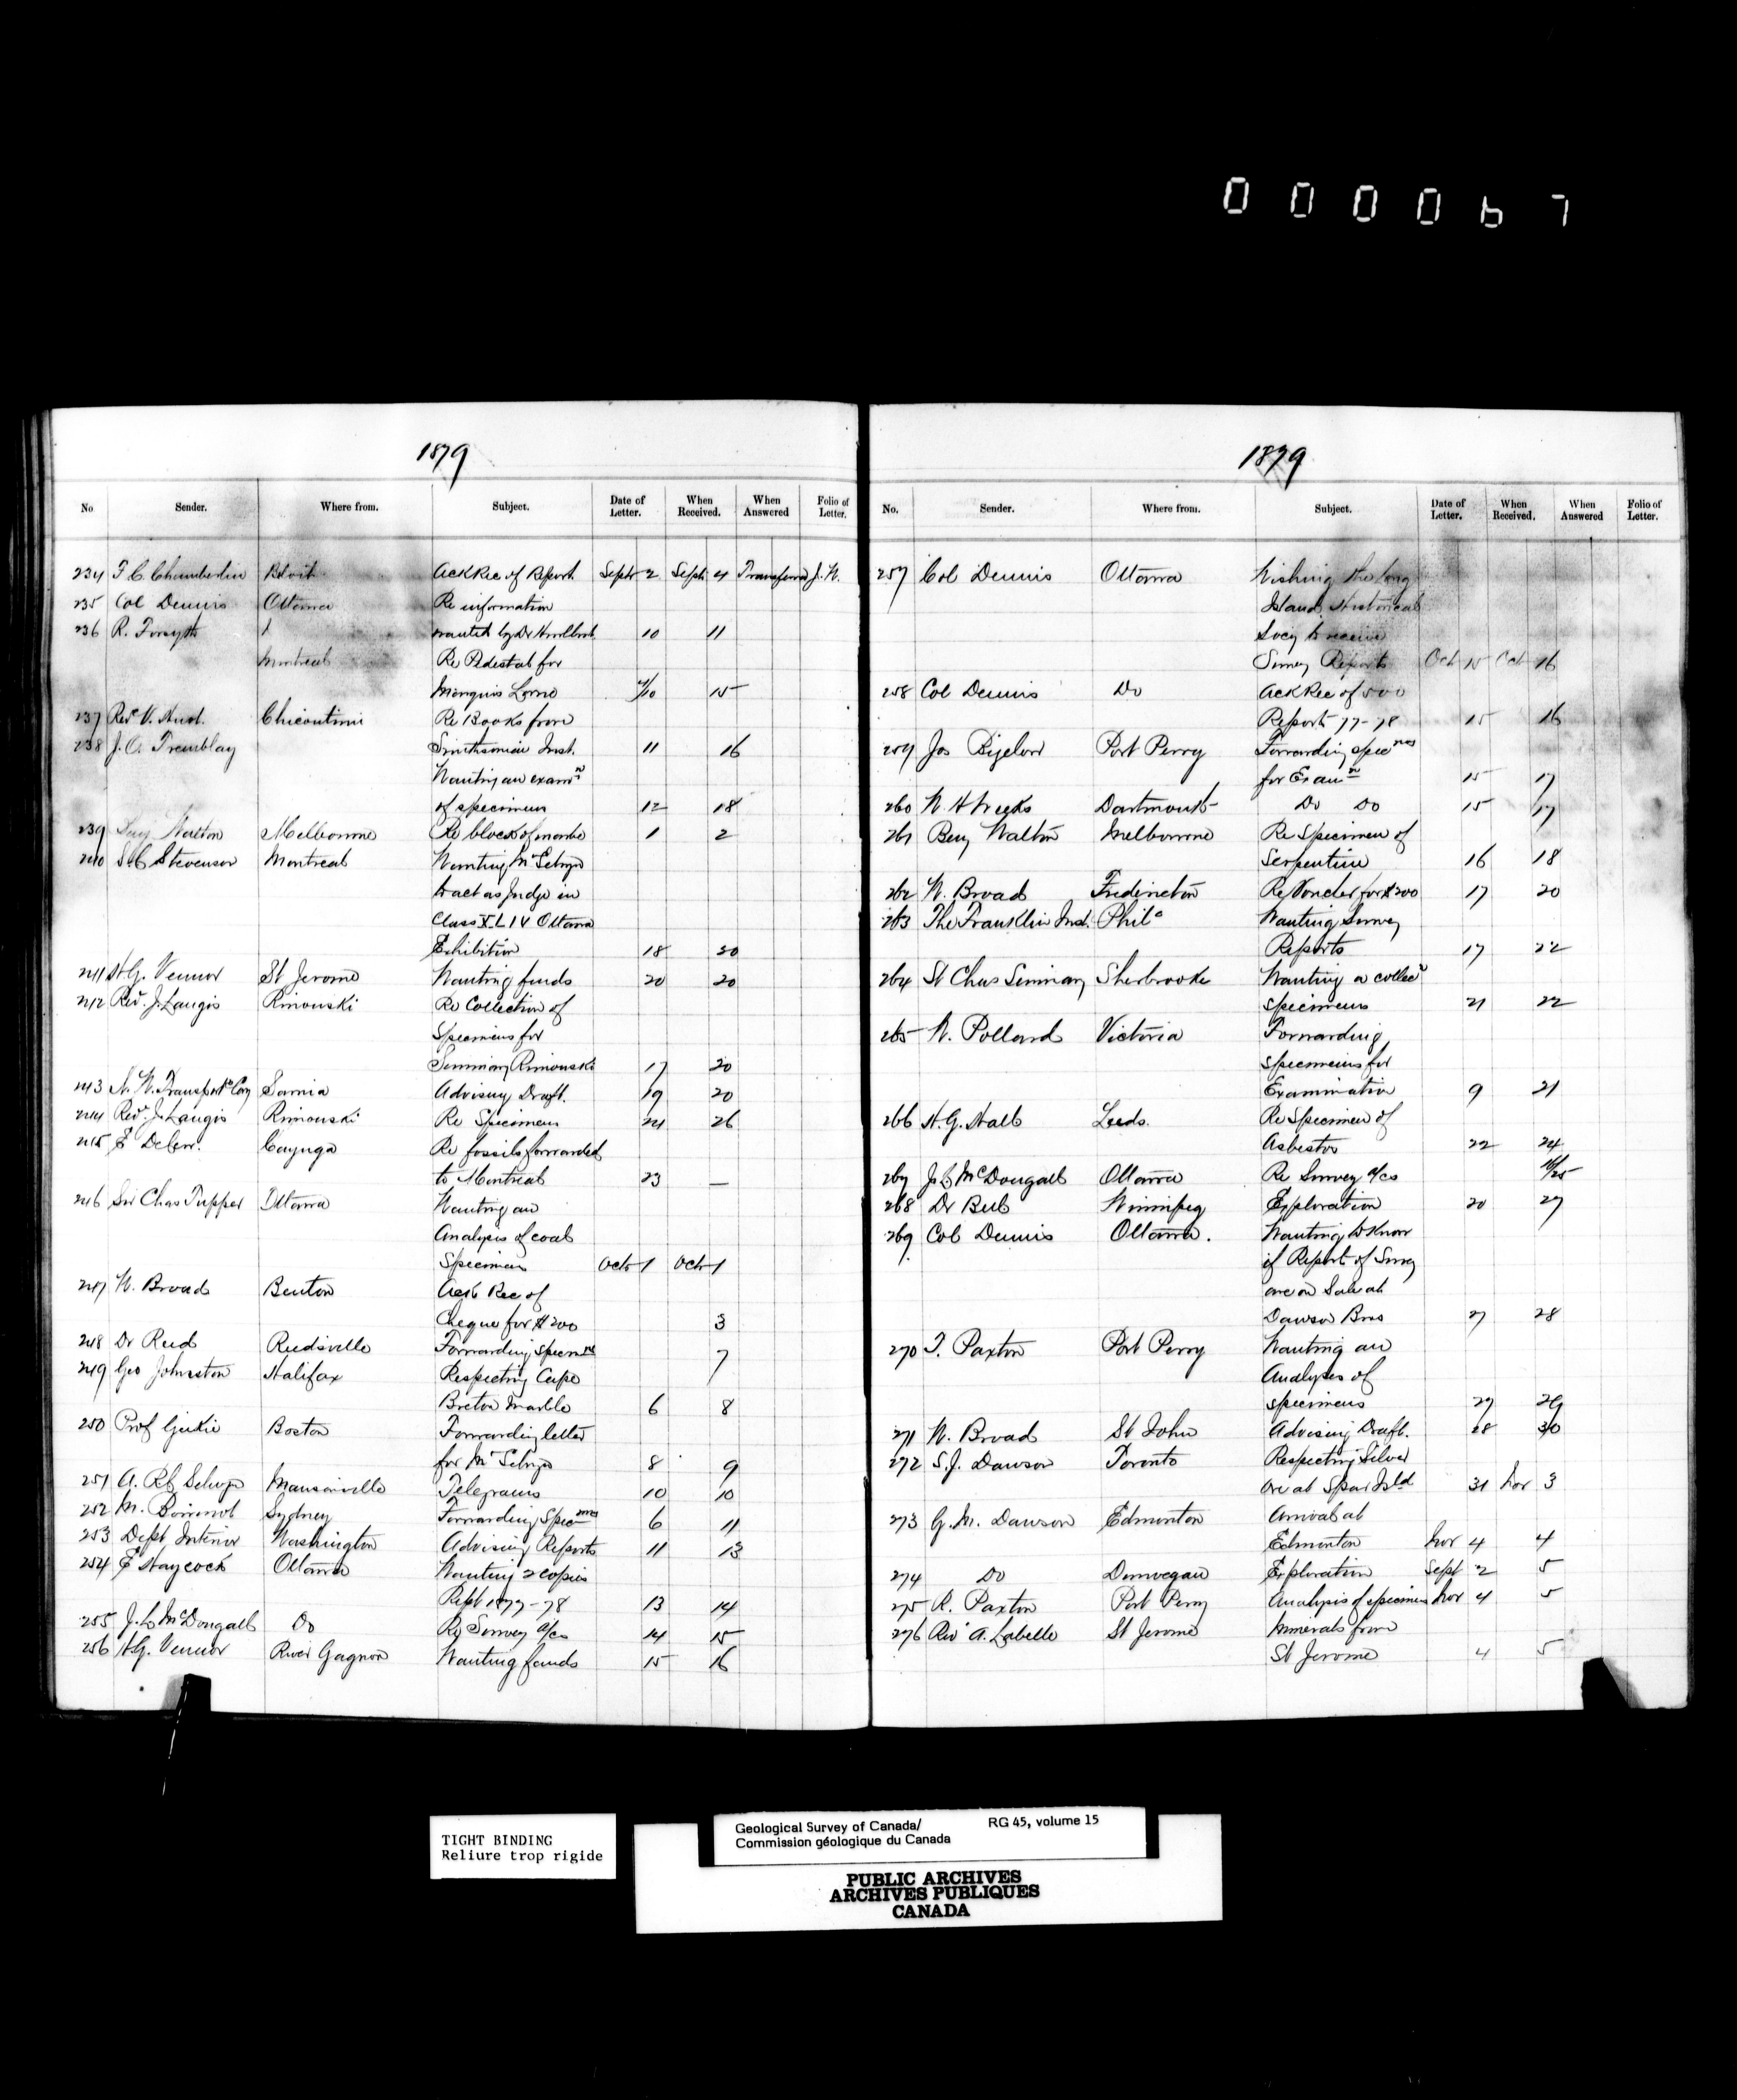 000067
1879
No Sender. Where from. Subject. Date of Letter. When Received. When Answered Folio of Letter.
234 T. C. Chamberlin Beloit Ack Rec of Report Sept 2 Sept 4 J. W.
235 Col Dennis Ottawa Re information
236 R. Forsyth wanted by Dr 10 11
Montreal Re Pedestal for
Marquis Lorne 9/10 15
237 Revd V. Hud. Chicoutimi Re Books from
238 J. O. Tremblay Smithsonian Inst. 11 16
Wanting an examn
of specimens 12 18
239 Walton Melbourne Re block of marble 1 2
240 S. C. Stevenson Montreal Wanting Mr Selwyn
to act as Judge in
Class Ottawa
Exhibition 18 20
241 H.G. Vennor St Jerome Wanting funds 20 20
242 Revd J. Langis Rimouski Re Collection of
Specimens for
Seminary Rimouski 17 20
243 N. W. Transportn Coy Sarnia Advising Draft. 19 20
244 Revd J. Langis Rimouski Re Specimens 24 26
245 E DeCew. Cayuga Re fossils forwarded
to Montreal 23 —
246 Sir Chas Tupper Ottawa Wanting an
Analysis of coal
Specimens Oct 1 Oct 1
247 W. Broad Benton Ack Rec of
Cheque for $200 3
248 Dr Reid Reidsville Forwarding specmns 7
249 Geo Johnston Halifax Respecting Cape
Breton Marble 6 8
250 Prof Geikie Boston Forwarding letter
for Mr Selwyn 8 9
251 A. R. C. Selwyn Mansonville Telegrams 10 10
252 M. Bourinot Sydney Forwarding Specmns 6 11
253 Dept Interior Washington Advising Reports 11 13
254 E Haycock Ottawa Wanting 2 copies
Rept 1877-78 13 14
255 J. L. McDougall Do Re Survey a/cs 14 15
256 H.G. Vennor River Gagnon Wanting funds 15 16
1879
No. Sender. Where from. Subject. Date of Letter. When Received. When Answered Folio of Letter.
257 Col Dennis Ottawa Wishing the Long
Island Historical
Socy to receive
Survey Reports Oct 15 Oct 16
258 Col Dennis Do Ack Rec of 500
Report 77-78 15 16
259 Jos Bigelow Port Perry Forwarding specmns
for Examn 15 17
260 W. H Weeks Dartmouth Do Do 15 17
261 Benj Walton Melbourne Re Specimen of
Serpentine 16 18
262 W. Broad Fredericton Re Voucher for $200 17 20
263 The Franklin Inst. Phila Wanting Survey
Reports 17 22
264 St Chas Seminary Sherbrooke Wanting a collecn
specimens 21 22
265 W. Pollard Victoria Forwarding
specimens for
Examination 9 21
266 H. G. Hall Leeds. Re Specimen of
Asbestos 22 24
267 J. L. McDougall Ottawa Re Survey a/cs 25
268 Dr Bell Winnipeg Exploration 20 27
269 Col Dennis Ottawa. Wanting to Know
if Report of Survey
are on Sale at
Dawson Bros 27 28
270 T. Paxton Port Perry Wanting an
Analysis of
specimens 27 29
271 W. Broad St John Advising Draft. 28 30
272 S.J. Dawson Toronto Respecting Silver
ore at Spar Isld 31 Nov 3
273 G. M. Dawson Edmonton Arrival at
Edmonton Nov 4 4
274 Do Dunvegan Exploration Sept 2 5
275 R. Paxton Port Perry Analysis of specimens Nov 4 5
276 Revd A. Labelle St Jerome Minerals from
St Jerome 4 5
TIGHT BINDING
Reliure trop rigide
Geological Survey of Canada/ RG 45, volume 15
Commission géologique du Canada
PUBLIC ARCHIVES
ARCHIVES PUBLIQUES
CANADA